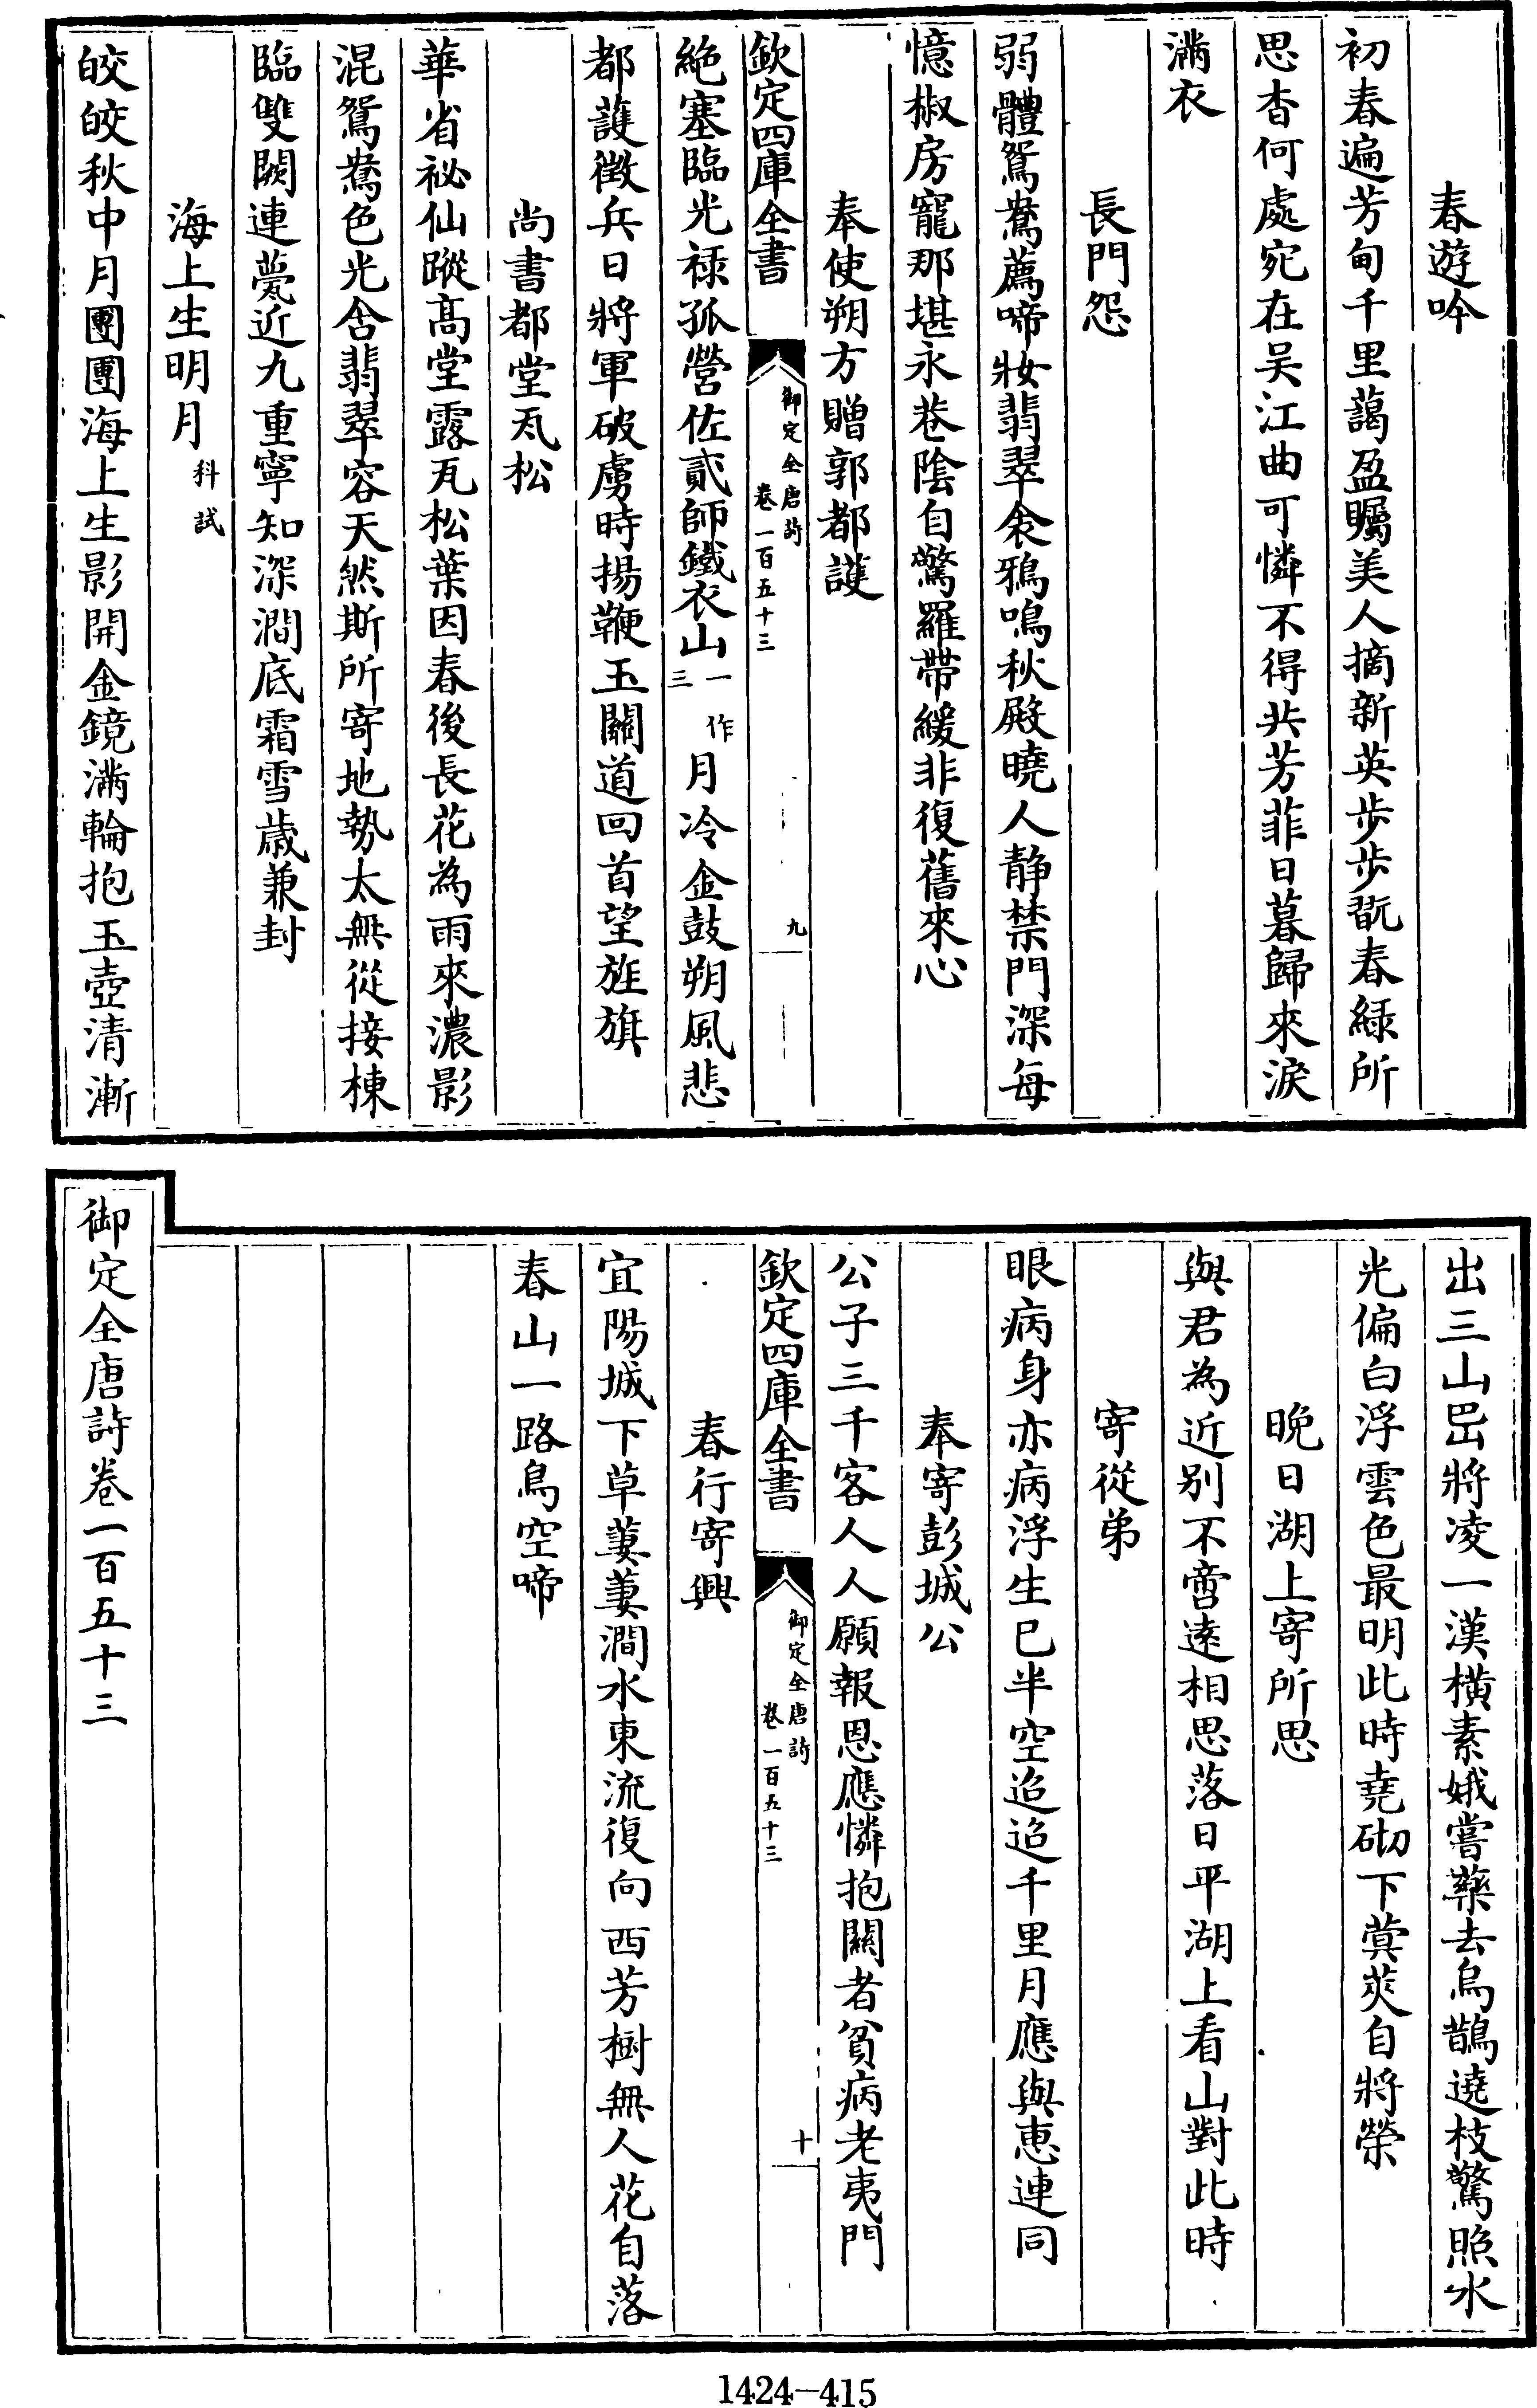 春遊吟
初春遍芳甸千里藹盈矚美人摘新英步步翫春緑所
思杳何處宛在吴江曲可憐不得共芳菲日暮歸來淚
滿衣
長門怨
弱體鴛鴦薦啼妝翡翠衾鴉鳴秋殿曉人静禁門深每
憶椒房寵那堪永巷陰自驚羅帶緩非復舊來心
奉使朔方贈郭都護
欽定四庫全書
御定全唐詩
卷一百五十三
九
絶塞臨光禄孤營佐貳師鐵衣山一作三月冷金鼓朔風悲
都護徵兵日將軍破虜時揚鞭玉關道回首望旌旗
尚書都堂瓦松
華省祕仙蹤高堂露瓦松葉因春後長花為雨來濃影
混鴛鴦色光含翡翠容天然斯所寄地勢太無從接棟
臨雙闕連甍近九重寧知深澗底霜雪歳兼封
海上生明月科試
皎皎秋中月團團海上生影開金鏡滿輪抱玉壺清漸
出三山岊將凌一漢横素娥嘗藥去烏鵲遶枝驚照水
光偏白浮雲色最明此時堯砌下蓂莢自將榮
晚日湖上寄所思
與君為近别不啻逺相思落日平湖上看山對此時
寄從弟
眼病身亦病浮生已半空迢迢千里月應與惠連同
奉寄彭城公
公子三千客人人願報恩應憐抱關者貧病老夷門
欽定四庫全書
御定全唐詩
卷一百五十三
十
春行寄興
宜陽城下草萋萋澗水東流復向西芳樹無人花自落
春山一路鳥空啼
御定全唐詩卷一百五十三
1424-415